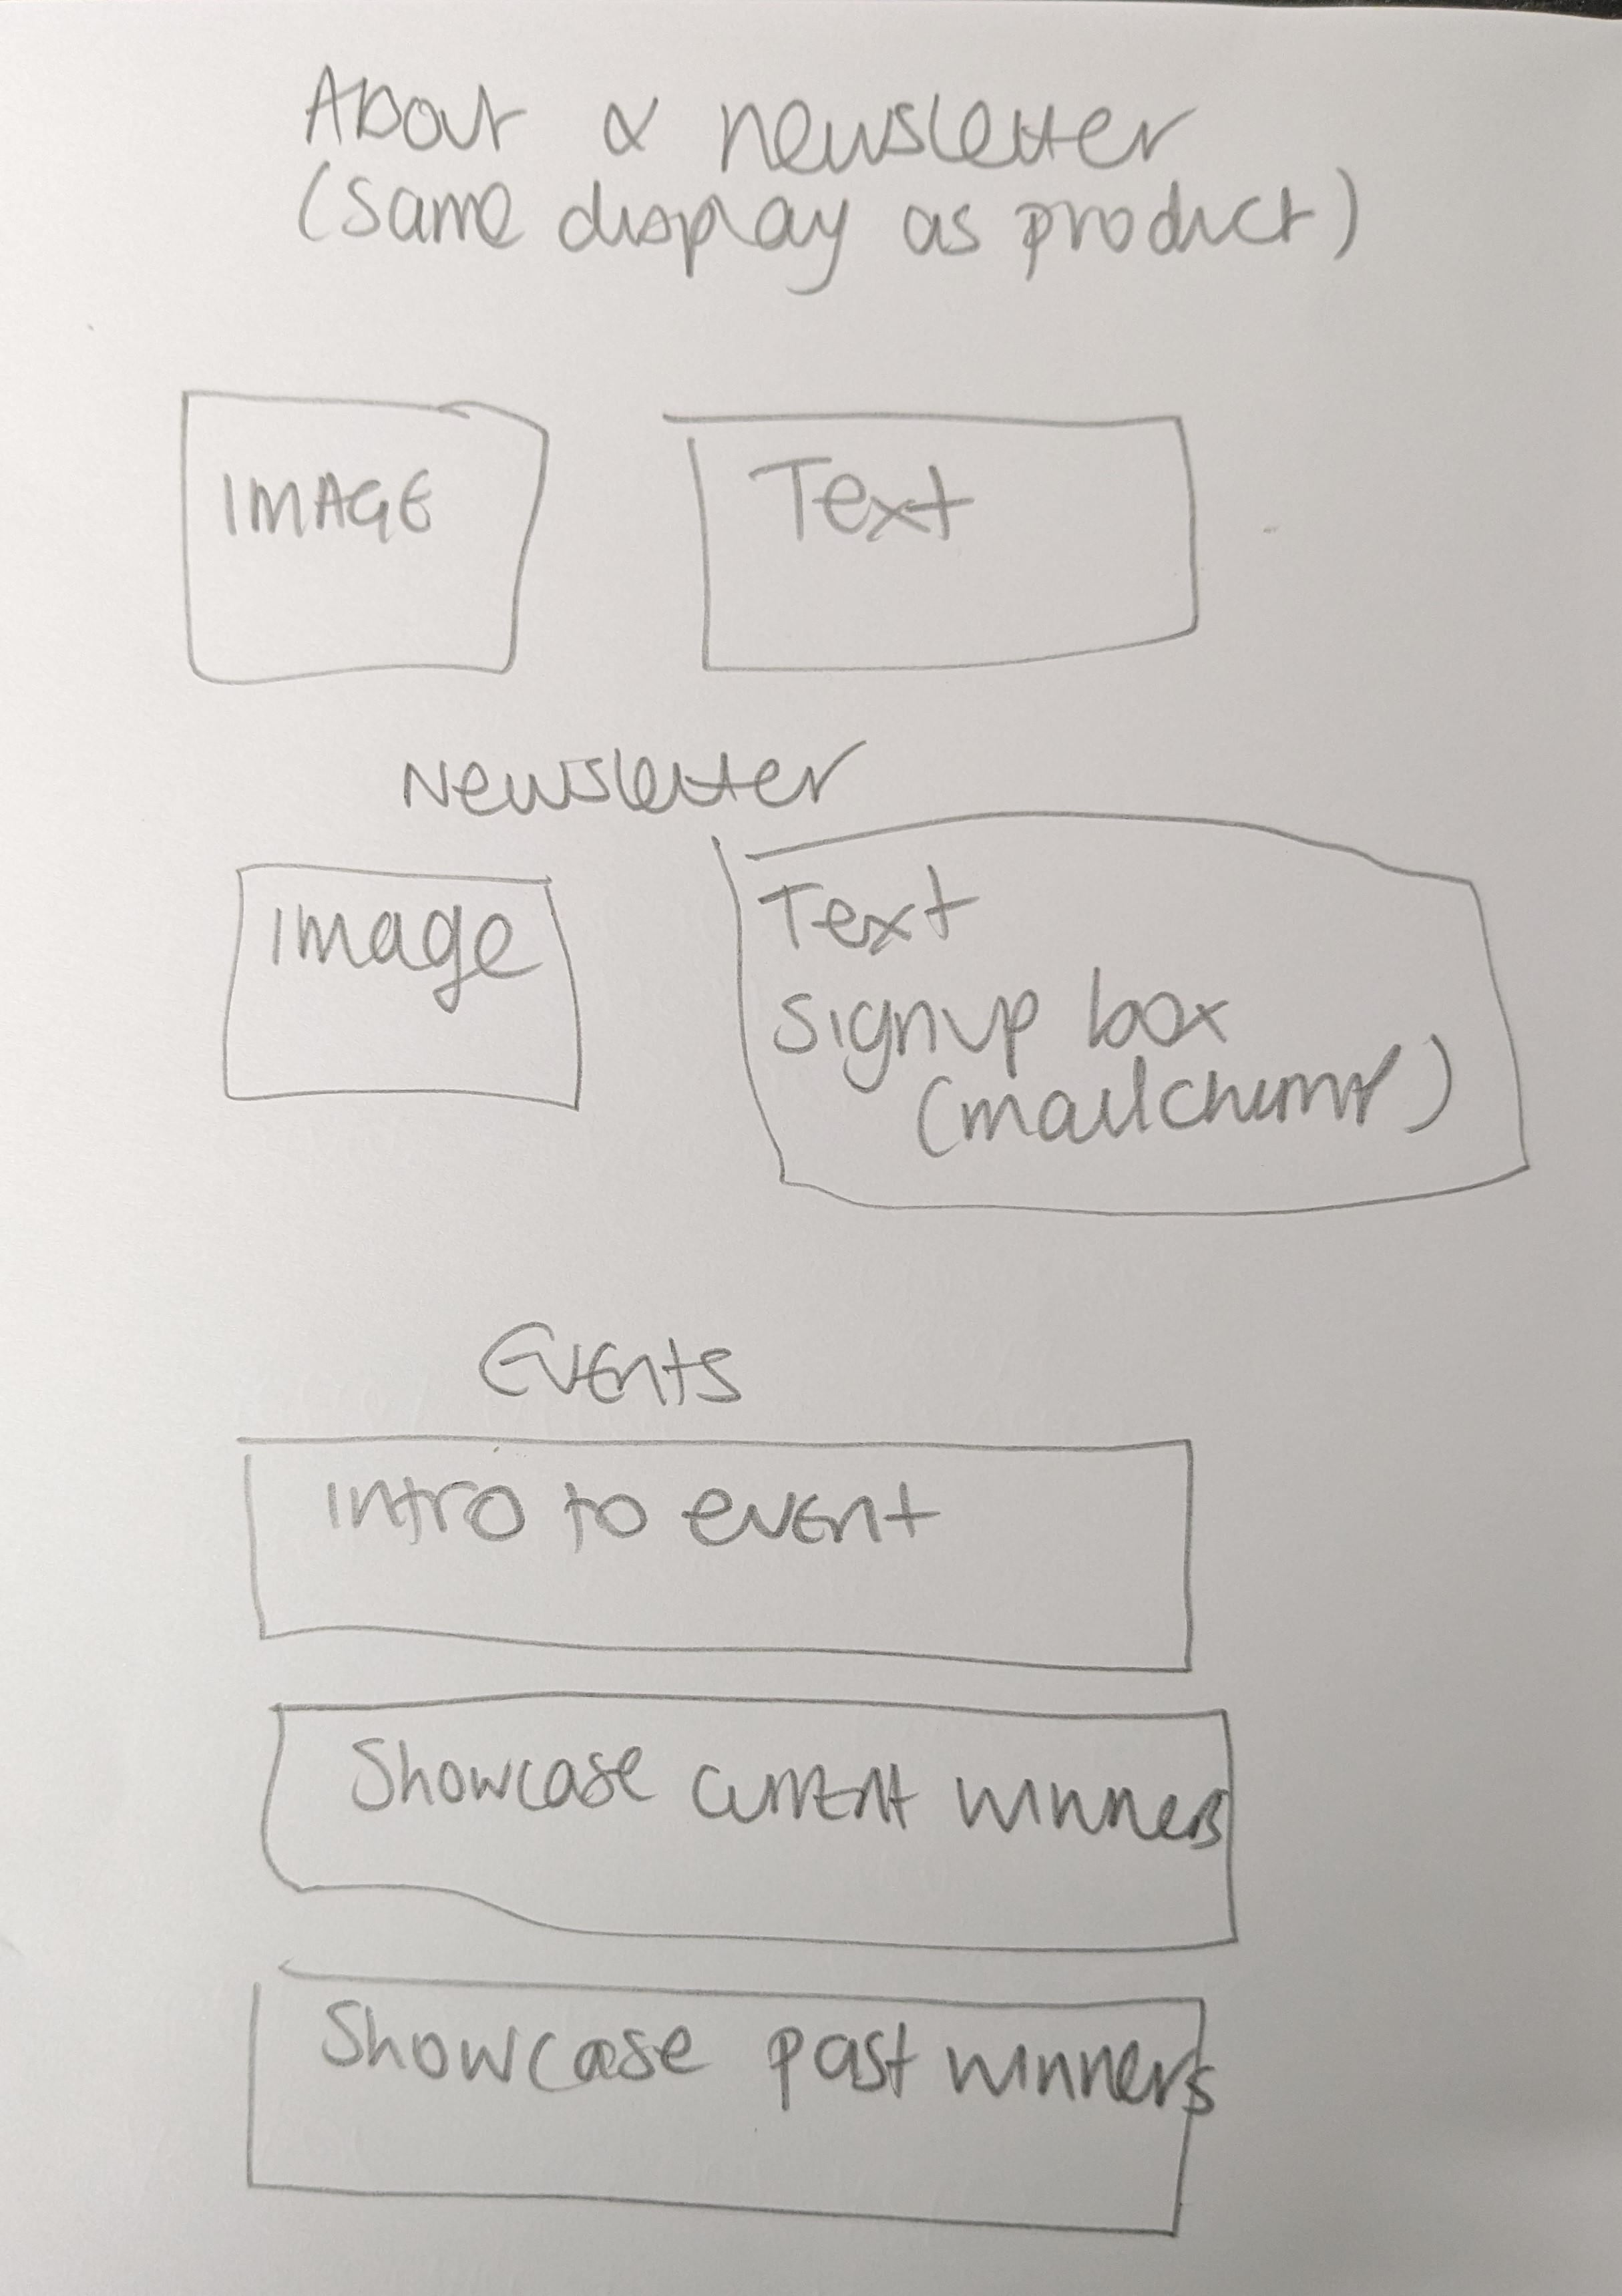 About & newsletter
(same display as product)
IMAGE
Text
Newsletter
image
Text
signup box
(mailchimp)
Events
intro to event
Showcase current winners
Showcase past winners